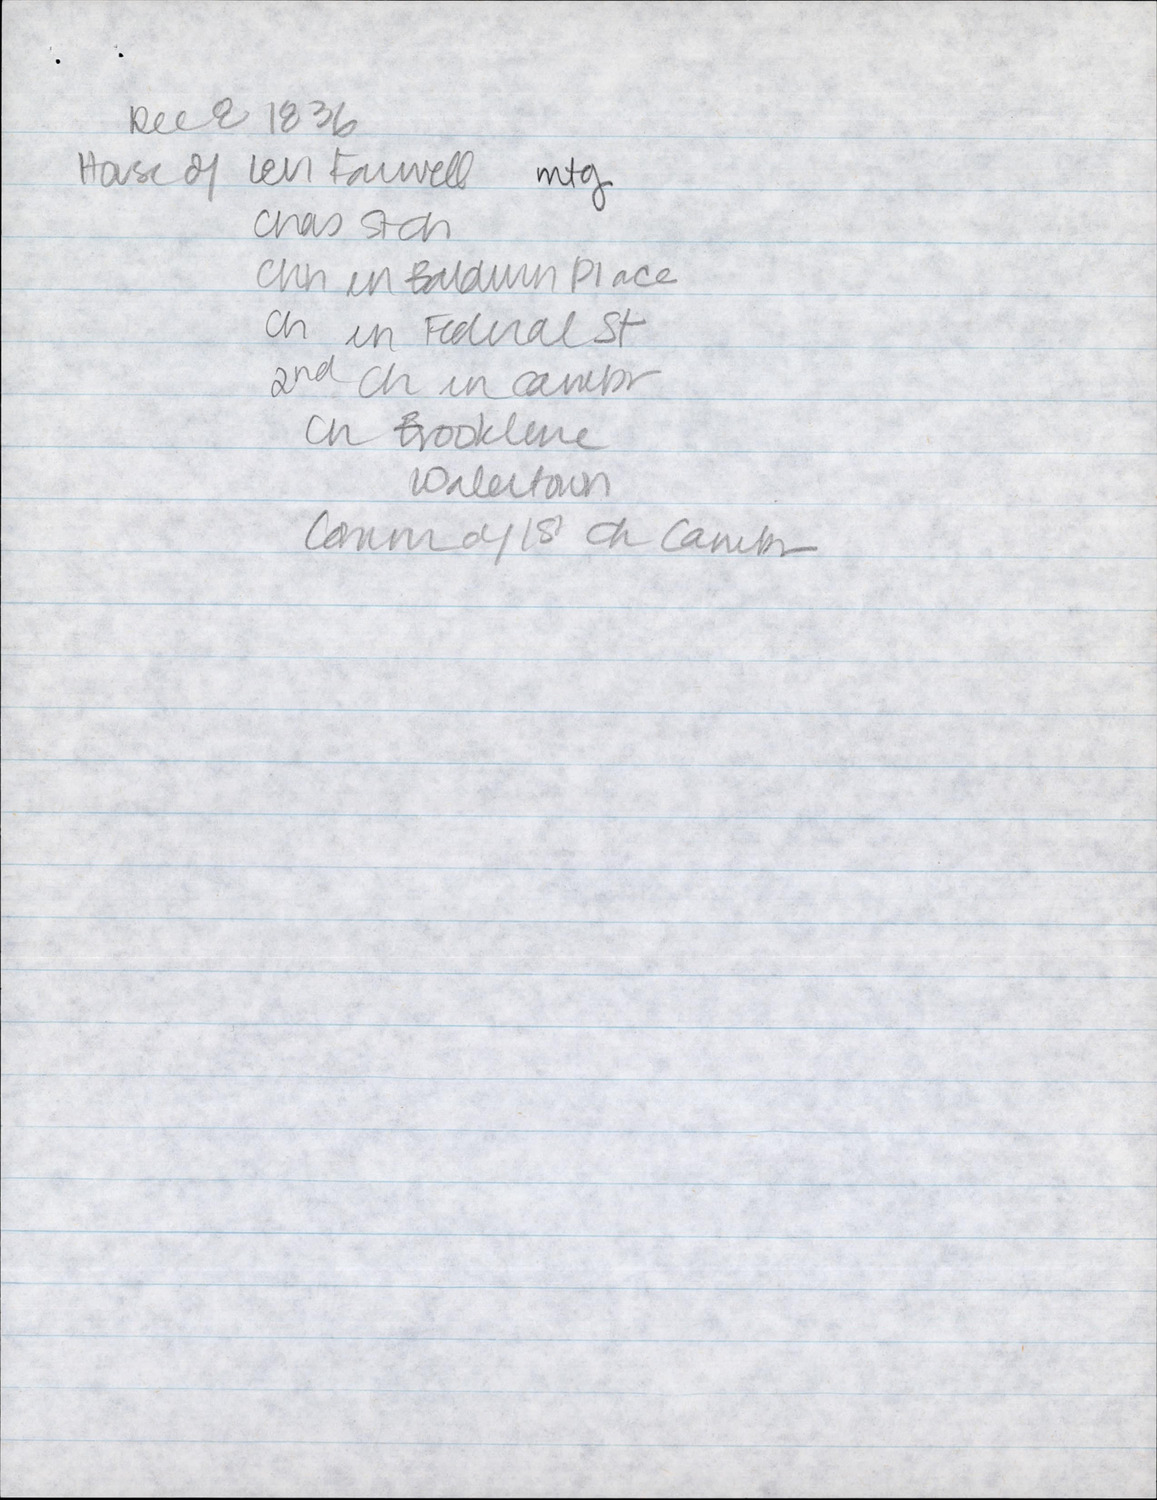 Dec 8 1836
House of Levi Farwell mtg
Chas St Ch
Chh in Baldwin Place
Ch in Federal St
2nd Ch in Cambr
Ch Brookline
Watertown
Comm of 1st Ch Cambr